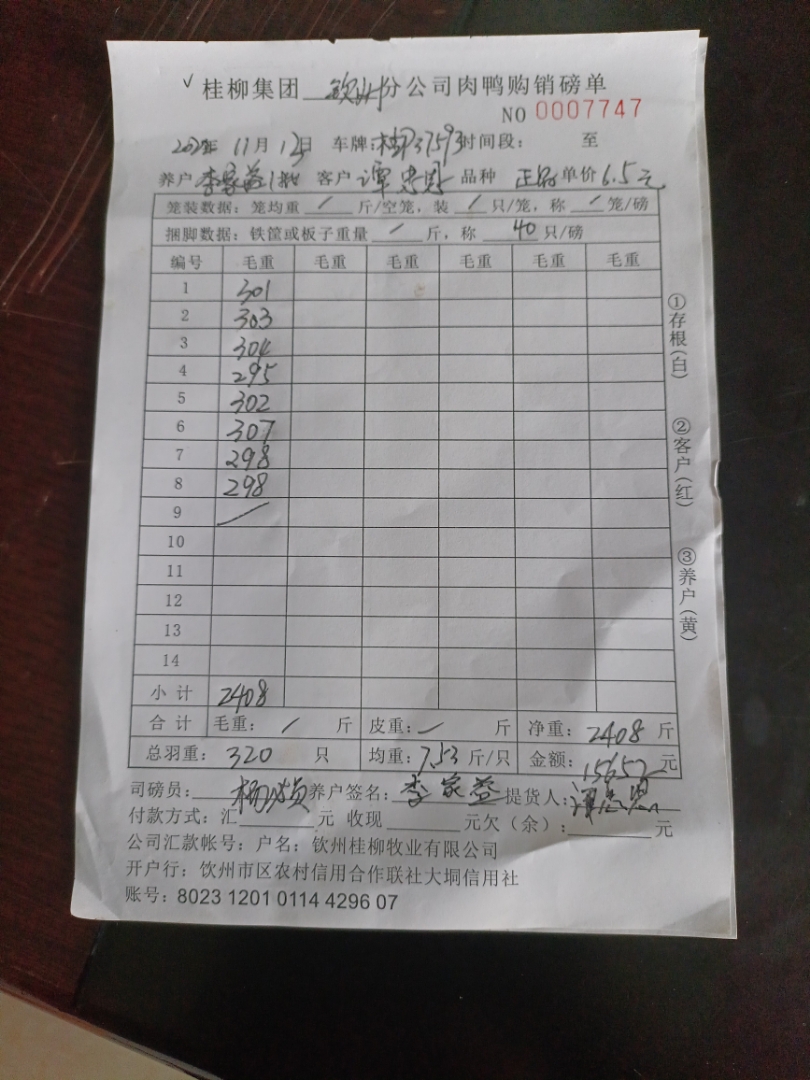 ✓桂柳集团 钦州分公司肉鸭购销磅单
NO 0007747
11月12日 车牌:桂 37593时间段: 至
养户 李家益1批 客户 谭忠 品种 正品 单价 6.5元
笼装数据: 笼均重 / 斤/空笼, 装 / 只/笼, 称 / 笼/磅
捆脚数据: 铁筐或板子重量 / 斤, 称 40 只/磅
编号 毛重 毛重 毛重 毛重 毛重 毛重
1 301
2 303
3 304
4 295
5 302
6 307
7 298
8 298
9 /
10
11
12
13
14
小计 2408
合计 毛重: / 斤 皮重: / 斤 净重: 2408 斤
总羽重: 320 只 均重: 7.53 斤/只 金额: 15652 元
司磅员: 杨 养户签名: 李家益 提货人: 谭忠
付款方式: 汇 元 收现 元欠(余): 元
公司汇款帐号: 户名: 钦州桂柳牧业有限公司
开户行: 饮州市区农村信用合作联社大垌信用社
账号: 8023 1201 0114 4296 07
①存根(白)
②客户(红)
③养户(黄)